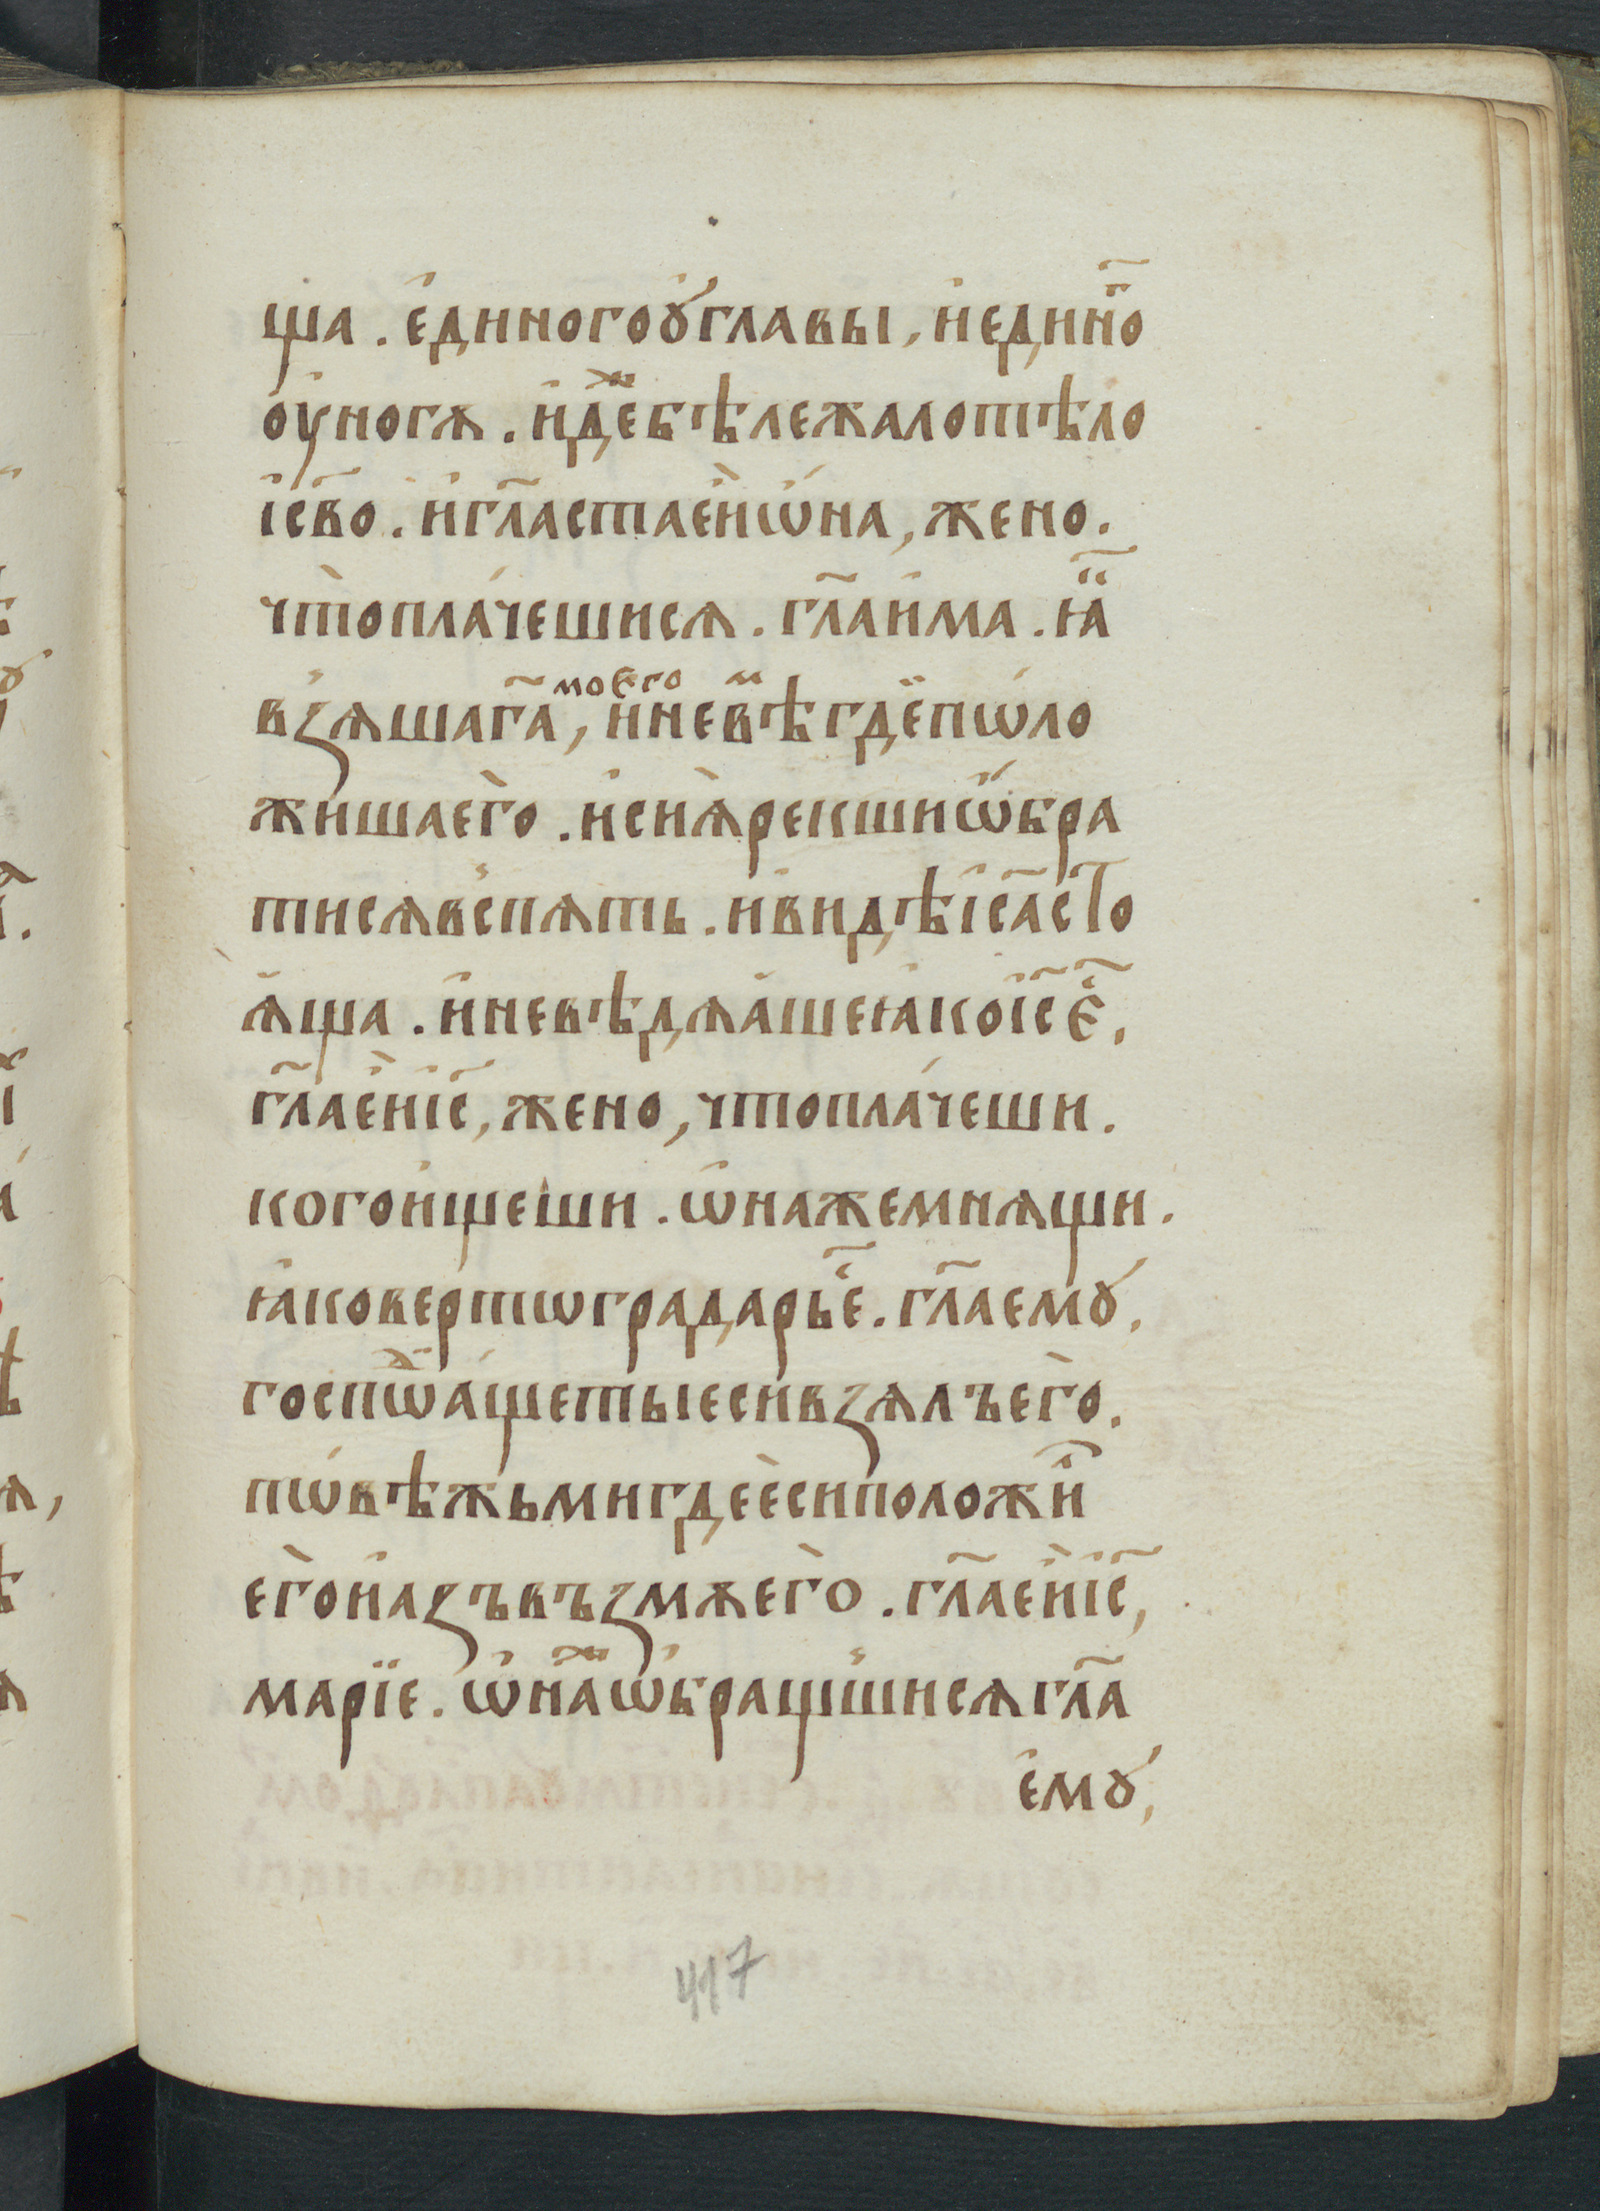 ща . є҆диногоꙋ҆главы , и҆єдино҃
оу҆ногѧ . и҆дⷤебѣлежалотѣло
і҆св҃о . и҆гл҃астаєи҆ѡ҆на , жено .
что̀пла́чешисѧ . гл҃аи҆ма . ꙗ҃
взѧшаг҃а моего , и҆невѣⷨгдѣ̈пѡ́ло
жишаєго̀ . и҆сиѧ̀рекшиѡ҆бра
тисѧвспѧть . и҆видѣі҆с҃асто
ѧ҆ща . и҆невѣдѧ҆шеꙗ҆коі҆с҃є҃ ,
гл҃аєи҆і҆с҃ , жено , чтопла́чеши .
когои҆щеши . ѡ҆нажемнѧщи .
ꙗ҆ковертѡградарьє҃ . гл҃аємꙋ̀ ,
госпѡⷣа҆щетыєсѝвзѧлъєго̀ .
пѡ́вѣжьмигдеєсиположиⷧ
єго̀и҆азъвъзмѫєго̀ . гл҃аєи҆і҆с҃ ,
марїе . ѡ҆наⷤѡ҆бращшисѧгл҃а
є҆мꙋ̀ ,
417